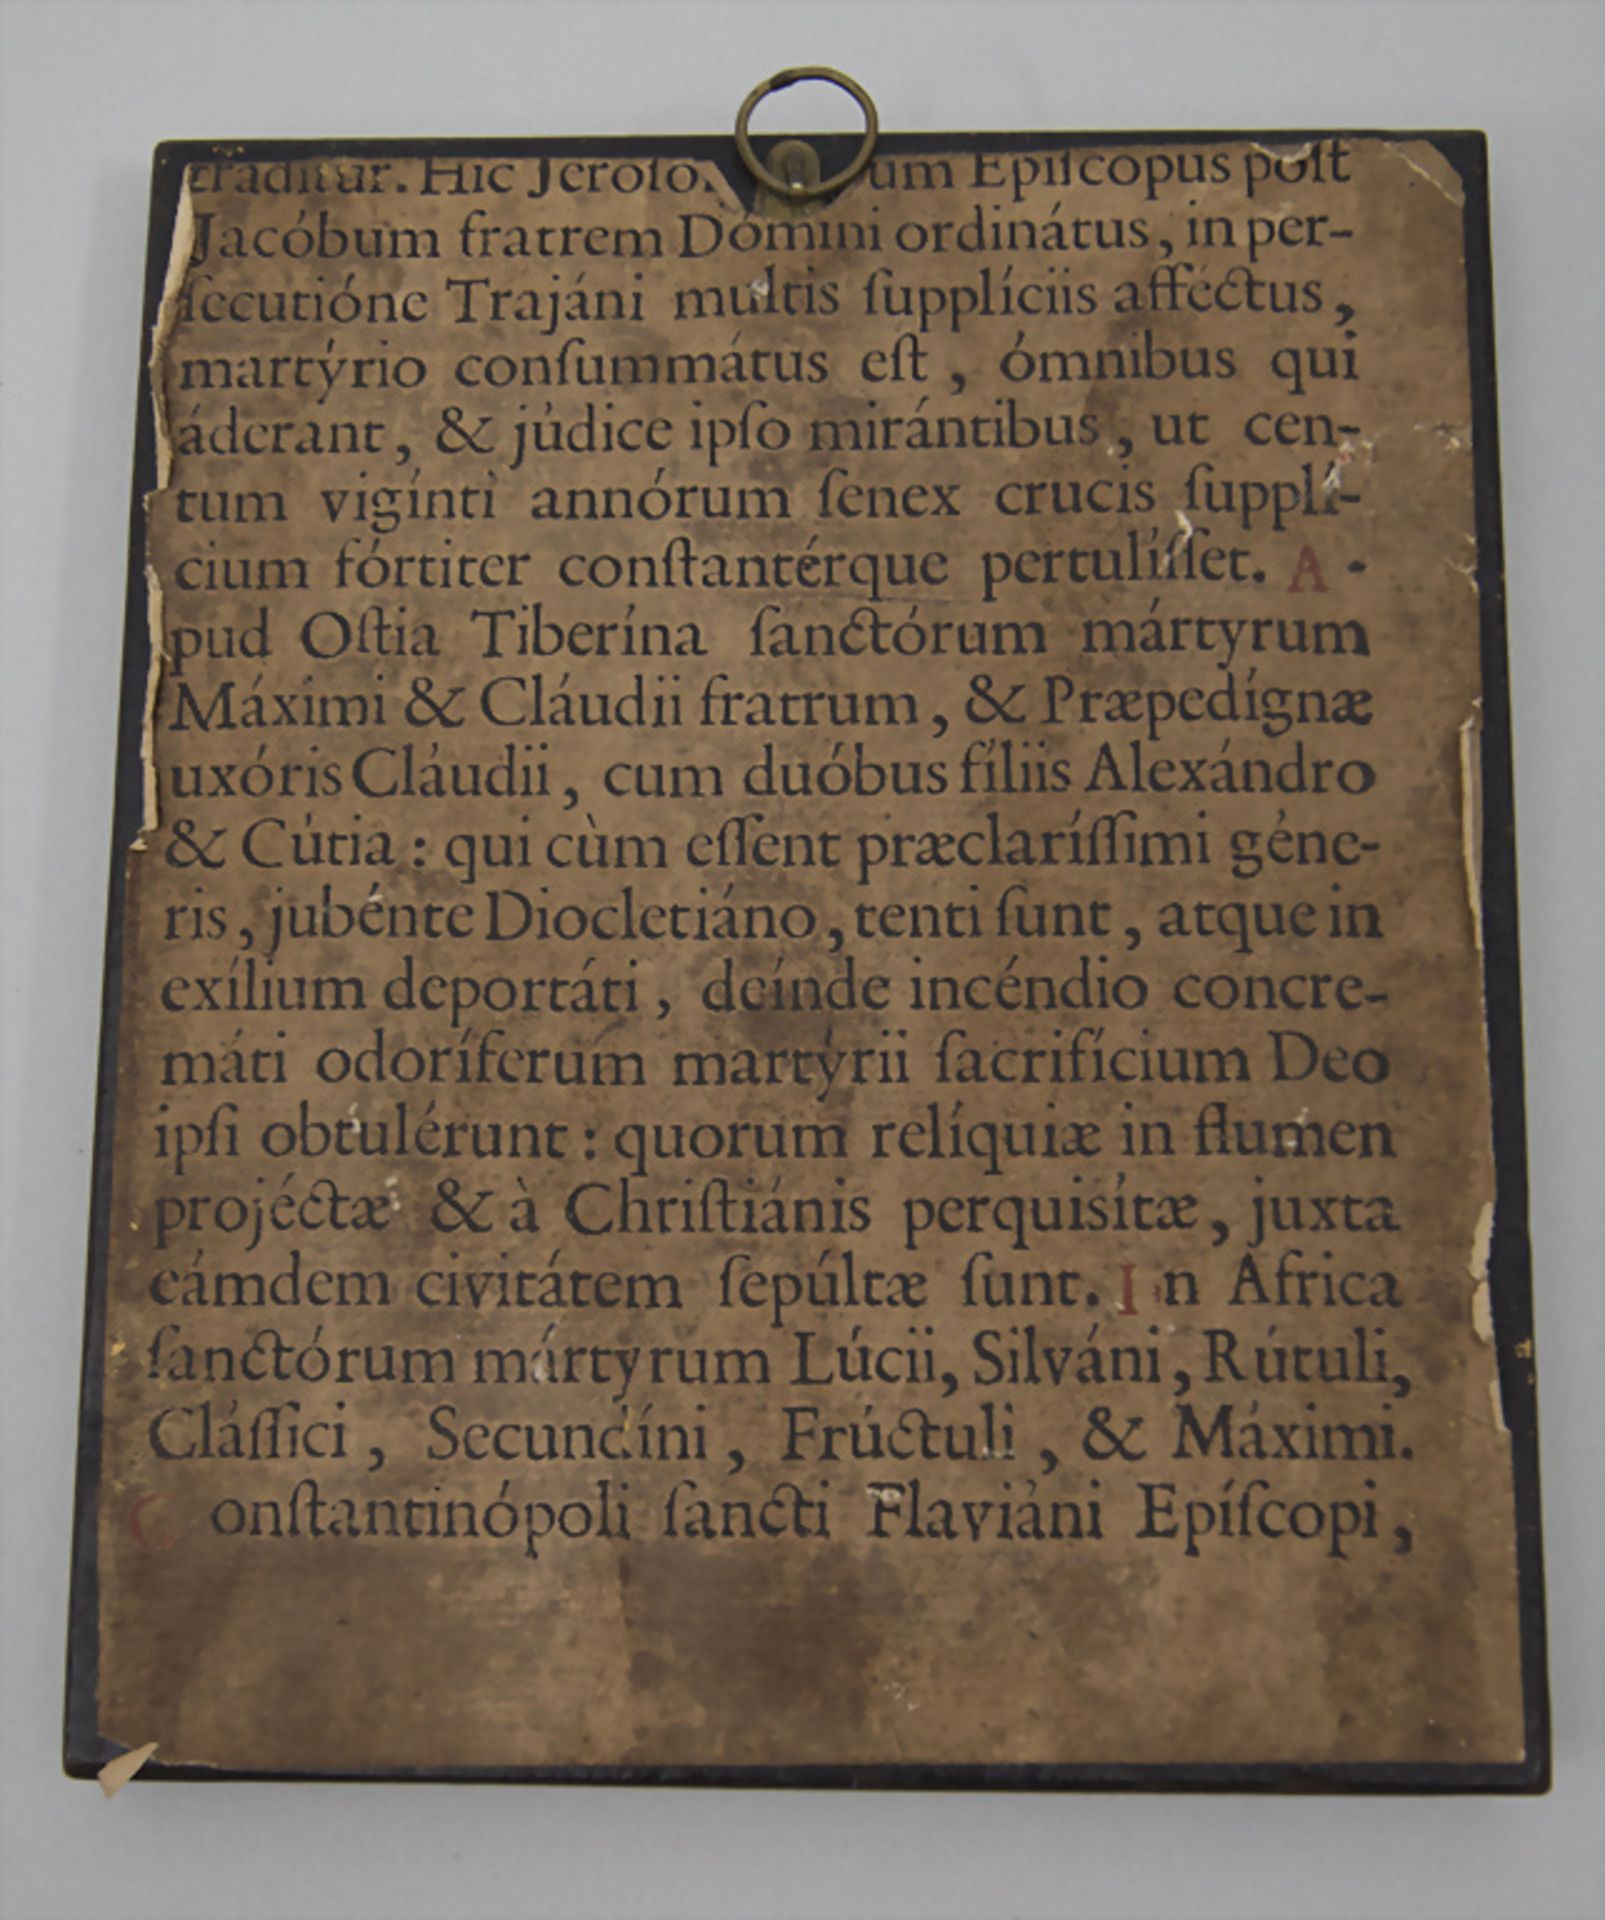 traditur. Hic Jeroſo um Epiſcopus poſt
Jacóbum fratrem Dómini ordinátus, in per-
ſecutióne Trajáni multis ſupplíciis afféctus,
martýrio conſummátus eſt, ómnibus qui
áderant, & júdice ipſo mirántibus, ut cen-
tum vigínti annórum ſenex crucis ſupplí-
cium fórtiter conſtantérque pertulíſſet. A-
pud Oſtia Tiberína ſanctórum mártyrum
Máximi & Cláudii fratrum, & Præpedígnæ
uxóris Cláudii, cum duóbus fíliis Alexándro
& Cútia: qui cùm eſſent præclaríſſimi géne-
ris, jubénte Diocletiáno, tenti ſunt, atque in
exílium deportáti, deínde incéndio concre-
máti odoríferum martýrii ſacrifícium Deo
ipſi obtulérunt: quorum relíquiæ in flumen
projéctæ & à Chriſtiánis perquisítæ, juxta
eámdem civitátem ſepúltæ ſunt. In Africa
ſanctórum mártyrum Lúcii, Silváni, Rútuli,
Cláſſici, Secundíni, Frúctuli, & Máximi.
Conſtantinópoli ſancti Flaviáni Epíſcopi,